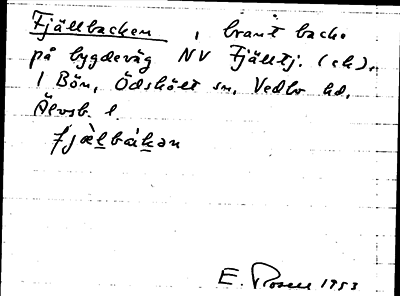 Fjällbacken, brant backe
på bygdeväg NV Fjälltj. (ek).
1 Bön, Ödskölt sn, Vedbo hd.
Älvsb. l.
fjæ̀lbákan
E. Rosell 1953